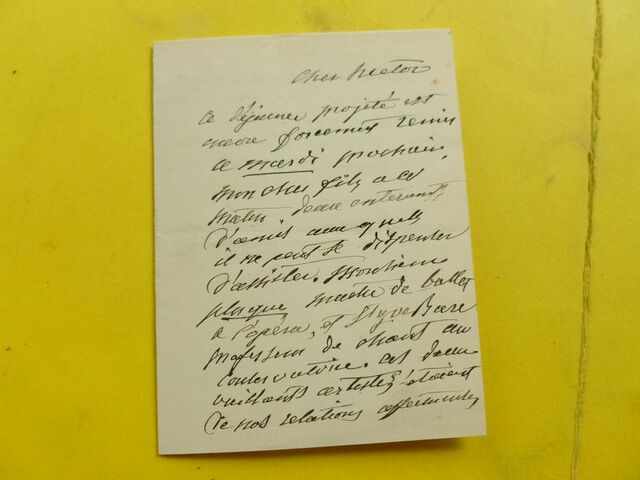 Cher Hector
Ce déjeuner projeté est
encore forcement remis
a mardi prochain
mon cher fils a ce
matin deux enterrements
d'amis auxquels
il ne peut se dispenser
d'assister. Monsieur
pluque maitre de ballet
a l'opéra, et St yves Bax
professeur de chant au
Conservatoire. ces deux
vaillants artistes étaient
de nos relations affectueuses